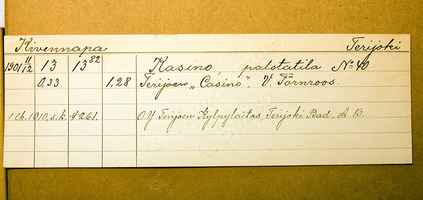 Kivennapa Terijoki
1901 11/12 13 13 82 Kasino, palstatila No 40
0.33 1.28 Terijoen „Casino". V. Törnroos.
1910, s.k. 4261. O.Y. Terijoen Kylpylaitos, Terijoki Bad, A.B.